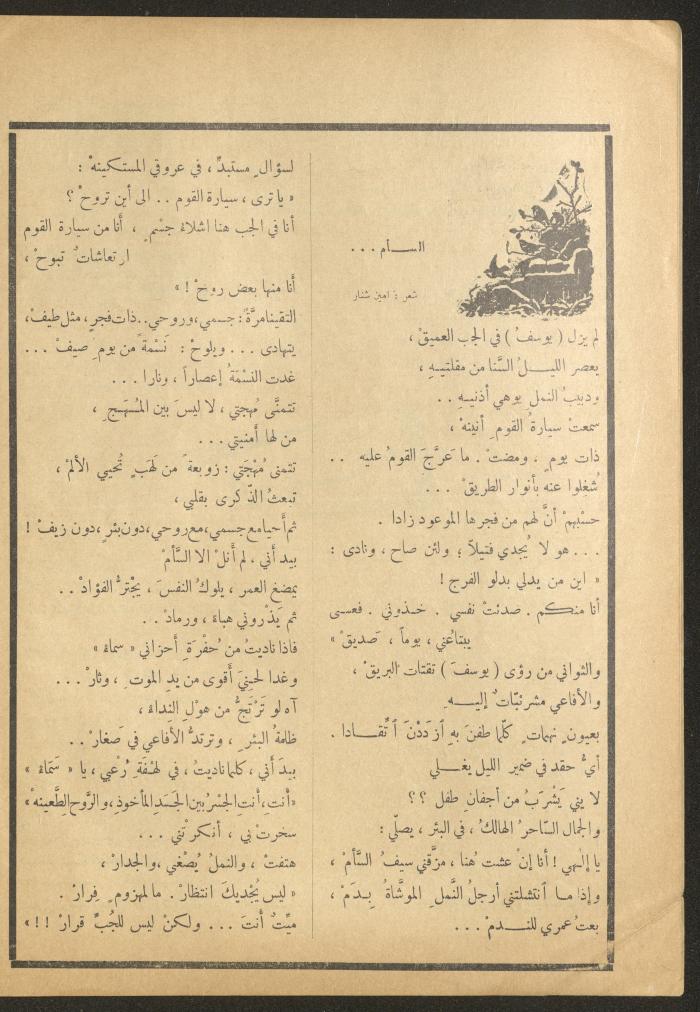 الســأم . . .
شعر : امين شنار
لم يزل ( يوسفُ ) في الجب العميقْ ،
يعصر الليــلُ السَّنا من مقلتيــهِ ،
ودبيبُ النمل يوهي أذنيــهِ . .
سمعتْ سيارةُ القومِ أنينهْ ،
ذات يومٍ . ومضتْ . ما عَرَّجَ القومُ عليه . .
شُغِلوا عنه بأنوار الطريقْ . . .
حسْبهمْ أنَّ لهم من فجرها الموعود زادا .
. . . هو لا يُجدي فتيلاً ؛ ولئن صاح ، ونادى :
« اين من يدلي بدلو الفرج !
أنا منكم . صدئتْ نفسي . خــذوني . فعســى
يبتاعُني ، يوماً ، صديقْ »
والثواني من رؤى ( يوسفَ ) تقتات البريقْ ،
والأفاعي مشرئبّاتٌ إليــــهِ
بعيونٍ نهماتٍ كلّما طفنَ بهِ ازدَدْنَ اتّقــادا .
أيُّ حقد في ضمير الليل يغــلي
لا يني يَشْرَبُ من أجفانِ طفل ؟ ؟
والجمال السّاحرُ الهالكُ ، في البئر ، يصلّي :
يا إلهي ! أنا إنْ عشتُ هُنا ، مزقني سيفُ السَّأمْ ،
وإذا مــا انتشلتني أرجلُ النَّملِ الموشَّاةُ بِــدَمْ ،
بعتُ عمري للنــدمْ . . .
لسؤالٍ مستبدٍّ ، في عروقي المستكينهْ :
« يا ترى ، سيارة القوم . . الى أين تروحْ ؟
أنا في الجب هنا اشلاءُ جسْمٍ ، أنا من سيارة القوم
ارتعاشاتٌ تبوحْ ،
أنا منها بعض روحْ ! »
التقينا مرَّةً : جسمي ، وروحي . . ذات فجرٍ ، مثل طيفْ ،
يتهادى . . . ويلوحْ : نَسْمَةً من يومِ صيفْ . . .
غدت النَسْمَةُ إعصاراً ، ونارا . . .
تتمنَّى مُهجتي ، لا ليسَ بين المُــهَــجِ ،
من لها أمنيتي . . .
تتمنى مُهْجَتي : زوبعةً من لَهَبٍ تُحيي الألمْ ،
تبعثُ الذّكرى بقلبي ،
ثم أحيا مع جسمي ، مع روحي ، دون بئرٍ ، دون زيفْ !
بيد أني ، لم أنلْ الا السَّأمْ
يمضغ العمر ، يلوكُ النفسَ ، يجْترُّ الفؤادْ . .
ثم يَذْروني هباءً ، ورمادْ . .
فاذا ناديتُ من حُفْرَةِ أحزاني « سماءُ »
وغدا لحنيَ أقوى من يدِ الموتِ ، وثارْ . . .
آه لو تَرْتَجُّ من هولِ النِداءْ ،
ظلمةُ البئرِ ، وترتدُّ الأفاعي في صَغارْ . .
بيدَ أني ، كلما ناديتُ ، في لهْفَةِ رُعْبي ، يا « سَمَاءُ »
« أنتِ ، أنتِ الجسْرُ بين الجَسَدِ المأخوذِ ، والرَّوحِ الطَّعينهْ »
سخرتْ بي ، أنكرتْني . . .
هتفتْ ، والنملُ يُصْغي ، والجدارْ ،
« ليس يُجْديكَ انتظارْ . ما لمهزومٍ فِرارْ .
ميّتٌ أنتَ . . . ولكنْ ليس للجُبِّ قرارْ ! ! »